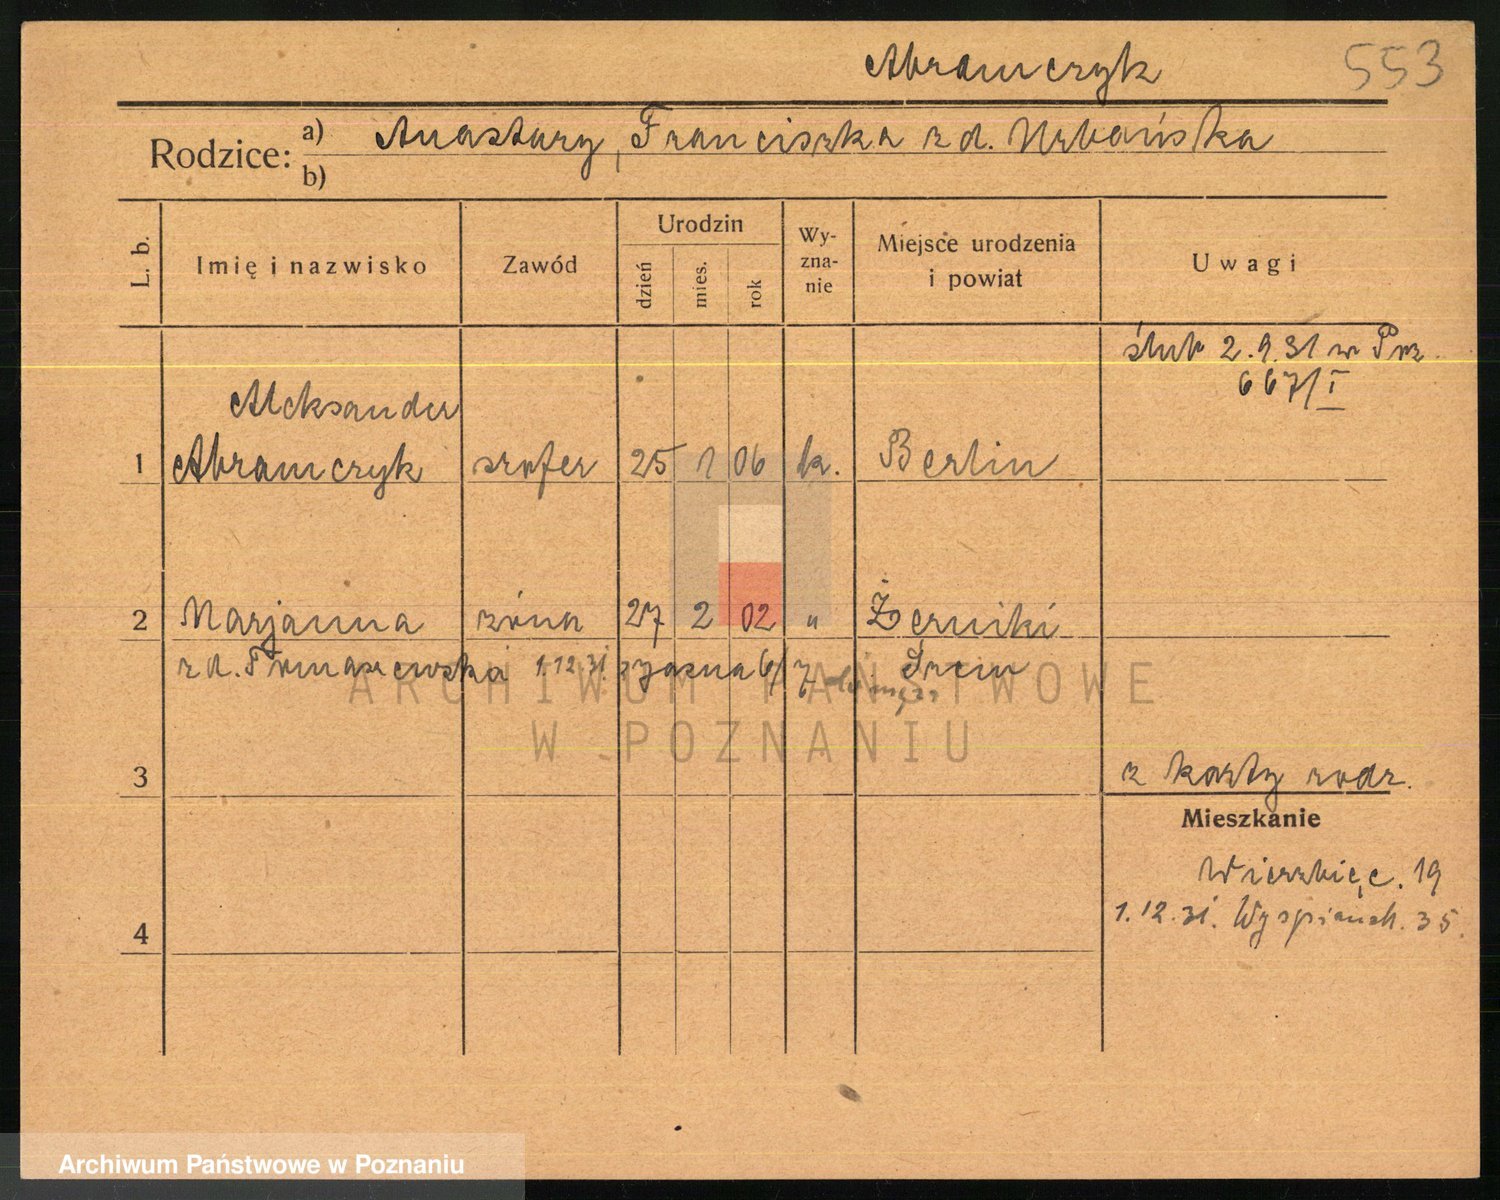 Abramczyk
553
Rodzice: a) Anastazy, Franciszka z d. Urbańska
b)
L. b.
Imię i nazwisko
Zawód
Urodzin
dzień
mies.
rok
Wy-
zna-
nie
Miejsce urodzenia
i powiat
Uwagi
ślub 2.9.31 w Poz.
667/I
Aleksander
1 Abramczyk szofer 25 1 06 k. Berlin
2 Marjanna żona 27 2 02 " Żerniki
z d. Tomaszewska 1.12.31. Jasna 6/7 Śrem
ARCHIWUM PAŃSTWOWE
W POZNANIU
3
z karty rodz.
Mieszkanie
Wierzbięc. 19
1.12.31. Wyspiańsk. 35.
4
Archiwum Państwowe w Poznaniu